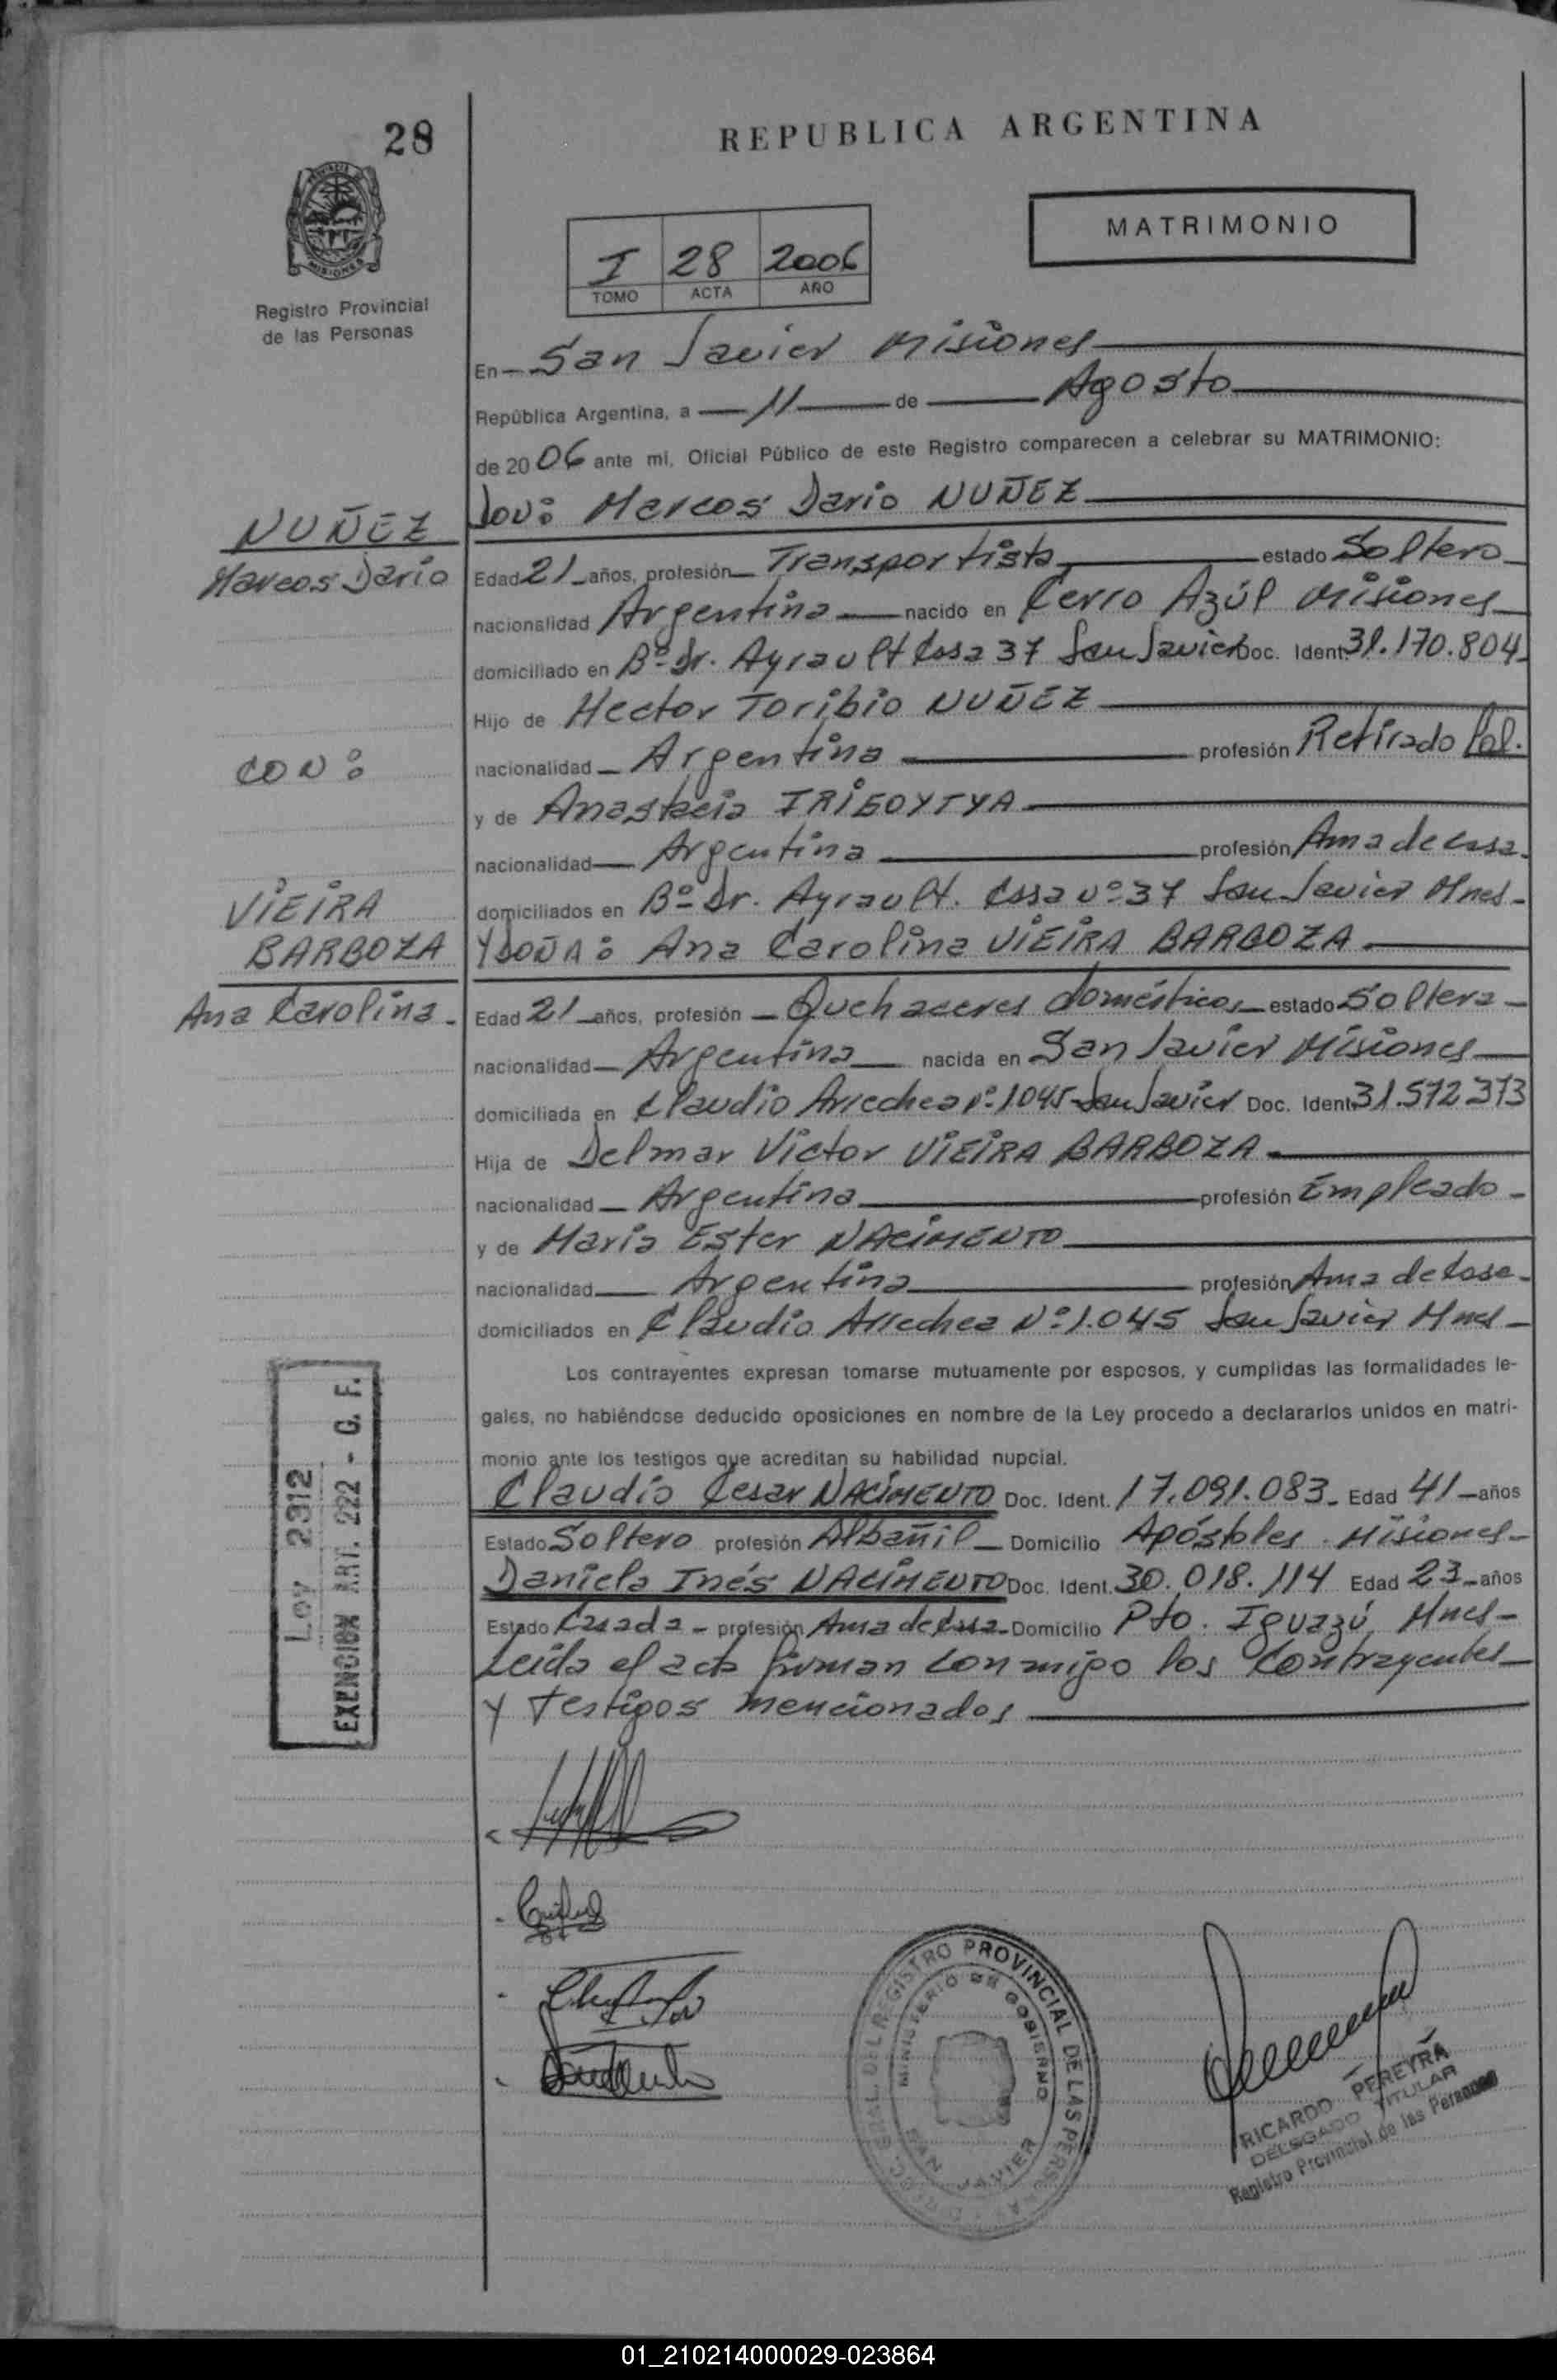 28
REPUBLICA ARGENTINA
MATRIMONIO
I 28 2006
TOMO ACTA AÑO
Registro Provincial
de las Personas
En San Javier Misiones
República Argentina, a 11 de Agosto
de 2006 ante mi, Oficial Público de este Registro comparecen a celebrar su MATRIMONIO:
Don: Marcos Dario NUÑEZ
NUÑEZ
Marcos Dario
Edad 21 años, profesión Transportista estado Soltero
nacionalidad Argentina nacido en Cerro Azúl Misiones
domiciliado en Bº Dr. Ayrault Casa 37 San Javier Doc. Ident. 31.170.804
Hijo de Hector Toribio NUÑEZ
CON:
nacionalidad Argentina profesión Retirado Pol.
y de Anastacia IRIGOYTYA
nacionalidad Argentina profesión Ama de casa
domiciliados en Bº Dr. Ayrault. Casa Nº 37 San Javier Mnes
VIEIRA
BARBOZA
Ana Carolina
Y DOÑA: Ana Carolina VIEIRA BARBOZA
Edad 21 años, profesión Quehaceres domésticos estado Soltera
nacionalidad Argentina nacida en San Javier Misiones
domiciliada en Claudio Arrechea Nº 1045 San Javier Doc. Ident. 31.572373
Hija de Delmar Victor VIEIRA BARBOZA
nacionalidad Argentina profesión Empleado
y de Maria Ester NACIMENTO
nacionalidad Argentina profesión Ama de Casa
domiciliados en Claudio Arrechea Nº 1.045 San Javier Mnes
Los contrayentes expresan tomarse mutuamente por esposos, y cumplidas las formalidades le-
gales, no habiéndose deducido oposiciones en nombre de la Ley procedo a declararlos unidos en matri-
monio ante los testigos que acreditan su habilidad nupcial.
Claudio Cesar NACIMENTO Doc. Ident. 17.091.083 Edad 41 años
Estado Soltero profesión Albañil Domicilio Apóstoles Misiones
Daniela Inés NACIMENTO Doc. Ident. 30.018.114 Edad 23 años
Estado Casada profesión Ama de Casa Domicilio Pto. Iguazú Mnes
Leida el acta firman conmigo los contrayentes
y testigos mencionados
Ley 2312
EXENCION ART. 222 - G. F.
REGISTRO PROVINCIAL DE LAS PERSONAS
MINISTERIO DE GOBIERNO
SAN JAVIER
RICARDO PEREYRA
DELEGADO TITULAR
Registro Provincial de las Personas
01_210214000029-023864